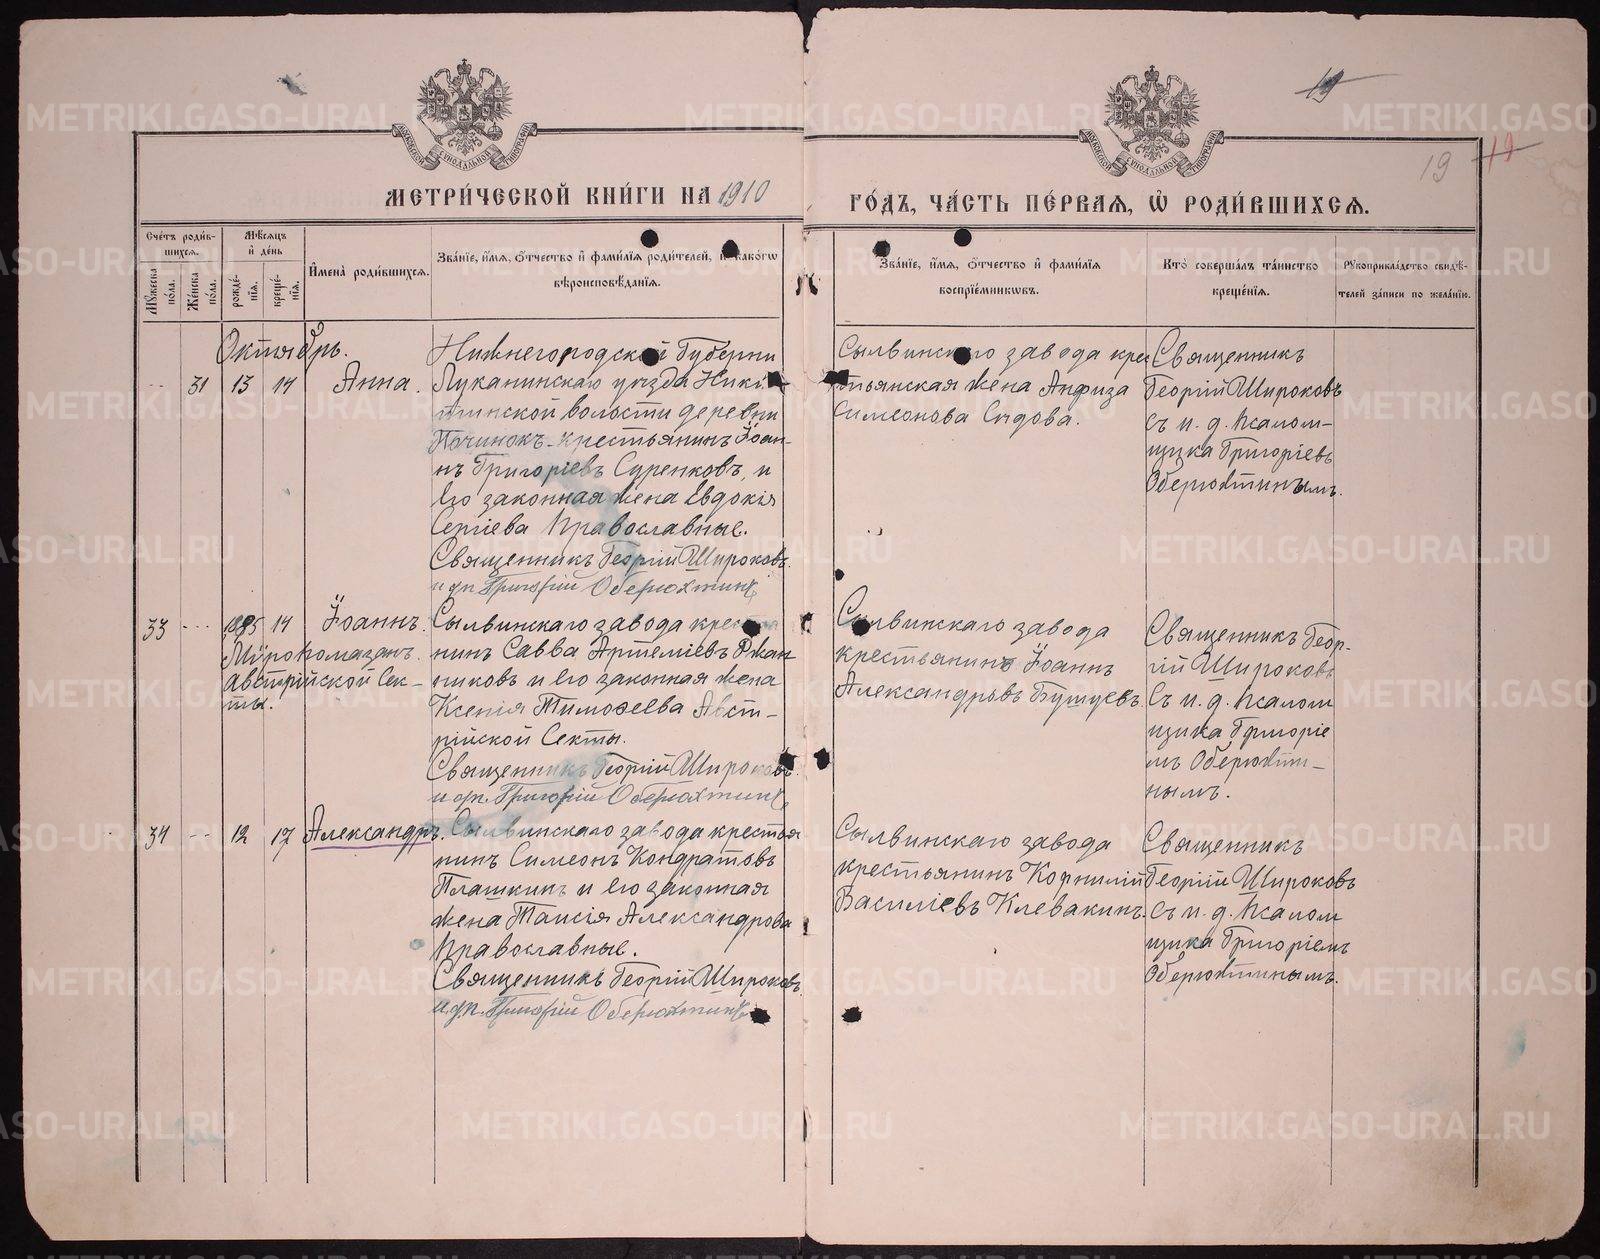 19
19 19
МОСКОВСКОЙ СУНОДАЛЬНОЙ ТИПОГРАФІИ
МОСКОВСКОЙ СУНОДАЛЬНОЙ ТИПОГРАФІИ
МЕТРИ́ЧЕСКОЙ КНИ́ГИ НА 1910
ГО́ДЪ, ЧА́СТЬ ПЕ́РВАѦ, Ѡ҆ РОДИ́ВШИХСѦ.
Сче́тъ роди́в-
шихсѧ.
Мѣ́сѧцъ
и҆ де́нь
Мꙋ́жеска
по́ла.
Же́нска
по́ла.
рожде́-
нїѧ.
креще́-
нїѧ.
И҆мена̀ роди́вшихсѧ.
Зва́нїе, и҆́мѧ, ѻ҆́тчество и҆ фами́лїѧ роди́телей, и҆ како́гѡ
вѣроисповѣ́данїѧ.
Зва́нїе, и҆́мѧ, ѻ҆́тчество и҆ фами́лїѧ
воспрїе́мникѡвъ.
Кто̀ соверша́лъ та́инство
креще́нїѧ.
Рꙋкоприкла́дство свидѣ́-
телей за́писи по жела́нїю.
Октябрь.
31 13 14 Анна.
Нижегородской Губерни
Луканинскаго уѣзда
волости деревни
Починокъ крестьянинъ Іоан-
нъ Григоріевъ Суренковъ, и
его законная жена Евдокія
Сергіева Православные.
Священникъ Георгій Широковъ.
и др. Григорій Оберюхтинъ
Сылвинскаго завода крес
тьянская жена Анфиза
Симеонова Сѣдова.
Священникъ
Георгій Широковъ
съ и. д. Псалом-
щика Григоріевъ
Оберюхтинымъ.
33 14 Іоаннъ.
Мѵропомазанъ
Австрійской Сек-
ты.
Сылвинскаго завода крес
нинъ Савва Артеміевъ Ржан
никовъ и его законная жена
Ксенія Тимофеева Авст-
рійской Секты.
Священникъ Георгій Широковъ.
и др. Григорій Оберюхтинъ
Сылвинскаго завода
крестьянинъ Іоаннъ
Александровъ Бушуевъ.
Священникъ Геор-
гій Широковъ
Съ и. д. Псалом
щика Григоріе
мъ Оберюхти-
нымъ.
34 12 17 Александръ.
Сылвинскаго завода крестья
нинъ Симеонъ Кондратовъ
Плашкинъ и его законная
жена Таисія Александрова
Православные.
Священникъ Георгій Широковъ.
и др. Григорій Оберюхтинъ
Сылвинскаго завода
крестьянинъ Корнилій
Василіевъ Клевакинъ.
Священникъ
Георгій Широковъ
съ и. д. Псалом
щика Григоріемъ
Оберюхтинымъ.
METRIKI.GASO-URAL.RU